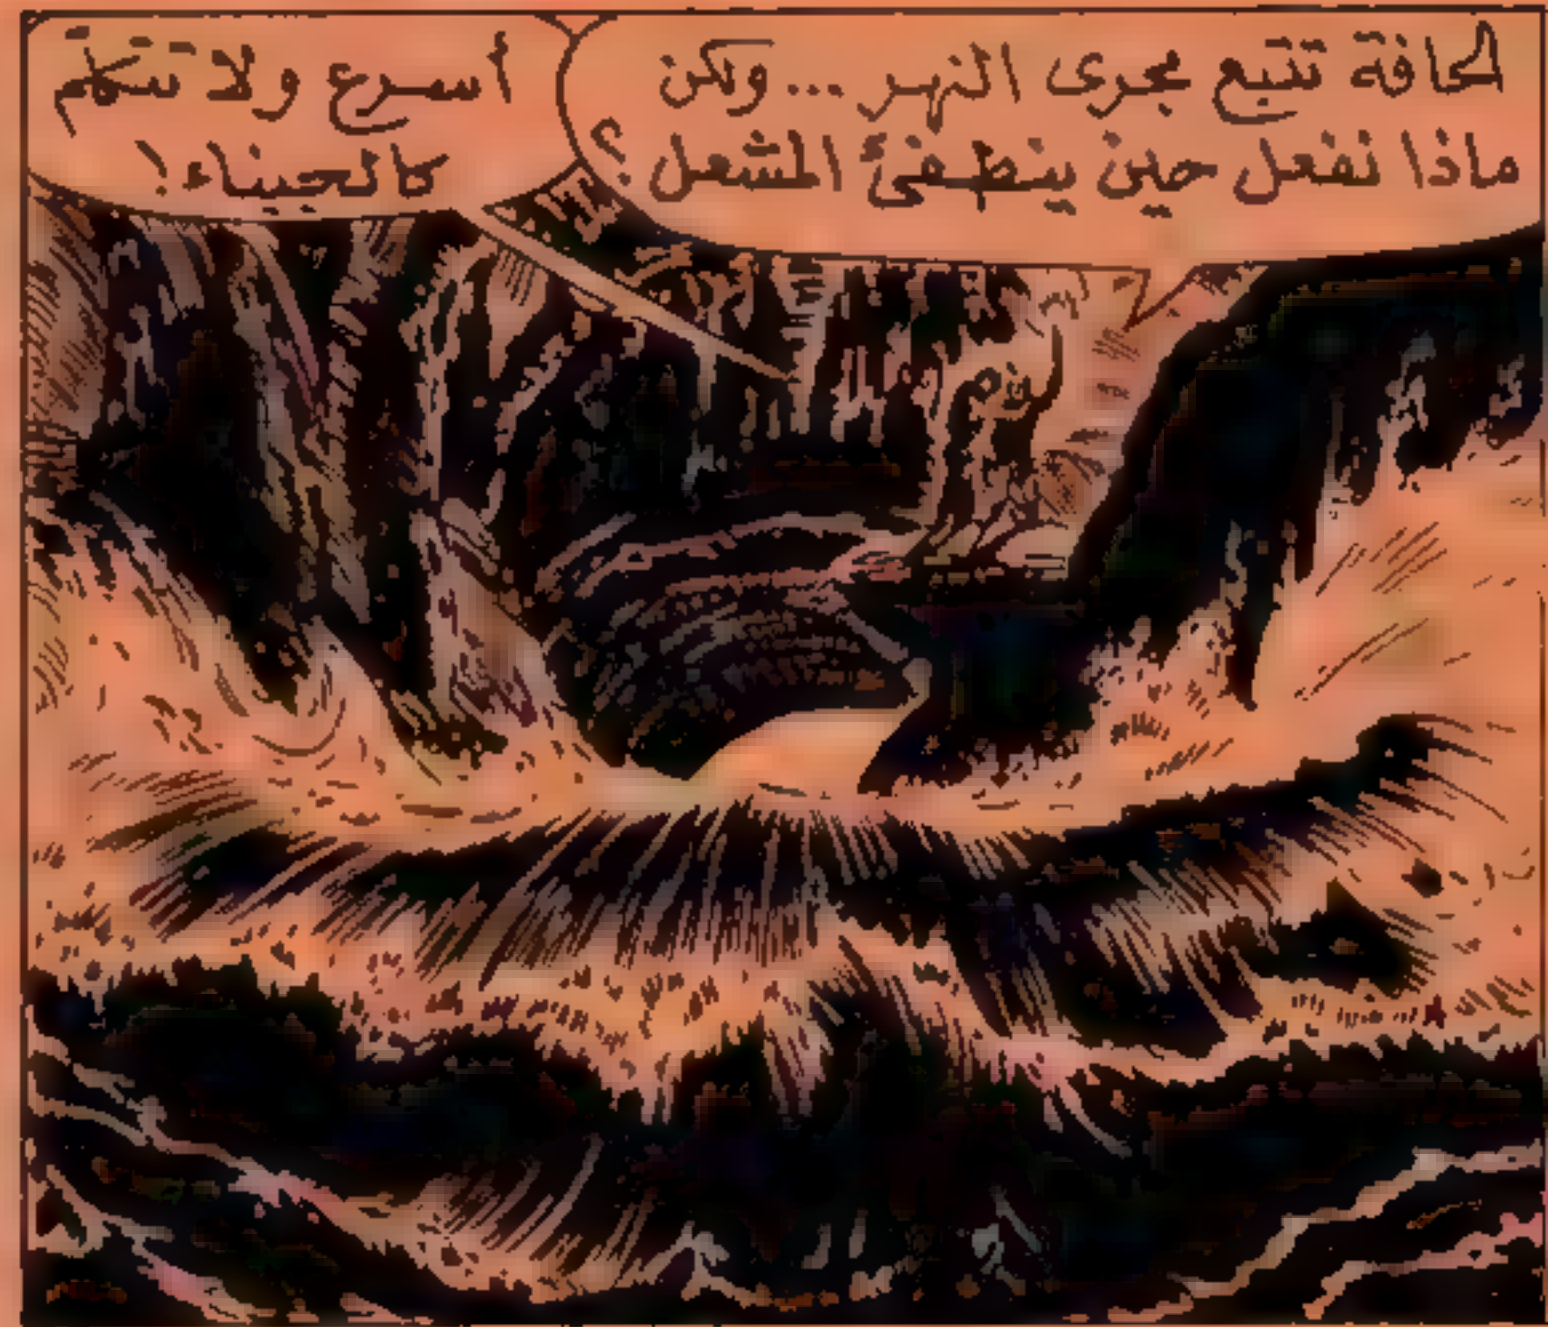 الحافة تتبع مجرى النهر ... ولكن
ماذا نفعل حين ينطفئ المشعل ؟
أسرع ولا تتكلم
كالجبناء !